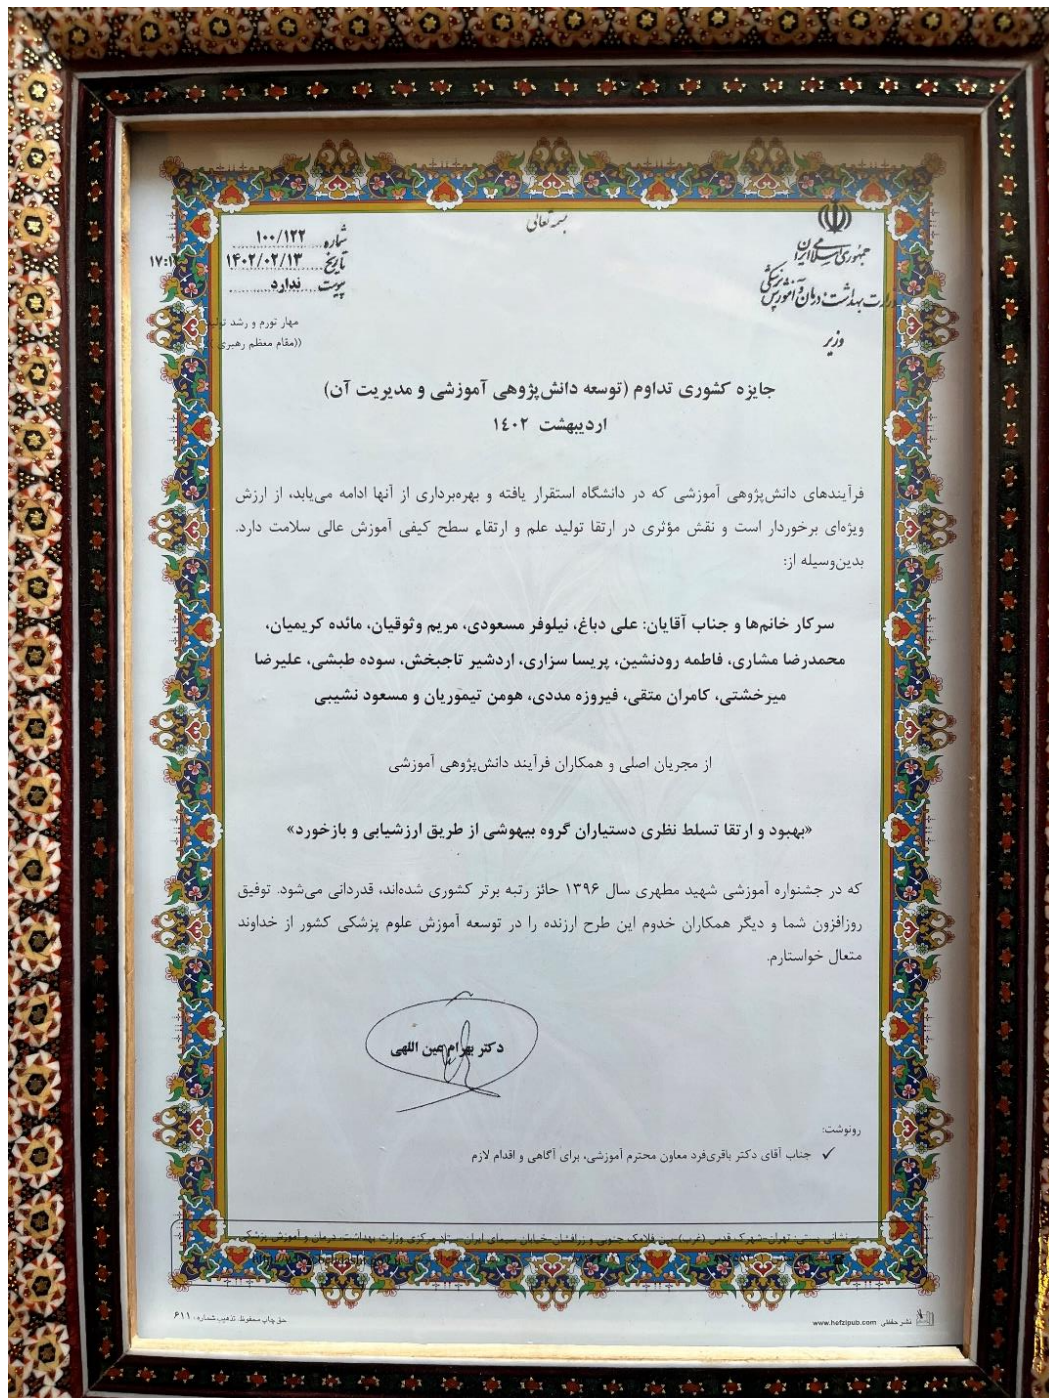 بسمه تعالی
جمهوری اسلامی ایران
وزارت بهداشت درمان و آموزش پزشکی
وزیر
شماره ۱۰۰/۱۲۲
تاریخ ۱۴۰۲/۰۲/۱۳
پیوست ندارد
مهار تورم و رشد تولید
((مقام معظم رهبری))
جایزه کشوری تداوم (توسعه دانش‌پژوهی آموزشی و مدیریت آن)
اردیبهشت ۱۴۰۲
فرآیندهای دانش‌پژوهی آموزشی که در دانشگاه استقرار یافته و بهره‌برداری از آنها ادامه می‌یابد، از ارزش
ویژه‌ای برخوردار است و نقش مؤثری در ارتقا تولید علم و ارتقاء سطح کیفی آموزش عالی سلامت دارد.
بدین‌وسیله از:
سرکار خانم‌ها و جناب آقایان: علی دباغ، نیلوفر مسعودی، مریم وثوقیان، مائده کریمیان،
محمدرضا مشاری، فاطمه رودنشین، پریسا سزاری، اردشیر تاجبخش، سوده طبشی، علیرضا
میرخشتی، کامران متقی، فیروزه مددی، هومن تیموریان و مسعود نشیبی
از مجریان اصلی و همکاران فرآیند دانش‌پژوهی آموزشی
«بهبود و ارتقا تسلط نظری دستیاران گروه بیهوشی از طریق ارزشیابی و بازخورد»
که در جشنواره آموزشی شهید مطهری سال ۱۳۹۶ حائز رتبه برتر کشوری شده‌اند، قدردانی می‌شود. توفیق
روزافزون شما و دیگر همکاران خدوم این طرح ارزنده را در توسعه آموزش علوم پزشکی کشور از خداوند
متعال خواستارم.
دکتر بهرام عین اللهی
رونوشت:
✓ جناب آقای دکتر باقری‌فرد معاون محترم آموزشی، برای آگاهی و اقدام لازم
نشانی پستی: تهران-شهرک قدس (غرب)-بین فلامک جنوبی و زرافشان-خیابان سیمای ایران-ستاد مرکزی وزارت بهداشت، درمان و آموزش پزشکی
نشر حفظی www.hefzipub.com
حق چاپ محفوظ، تذهیب شماره: ۶۱۱